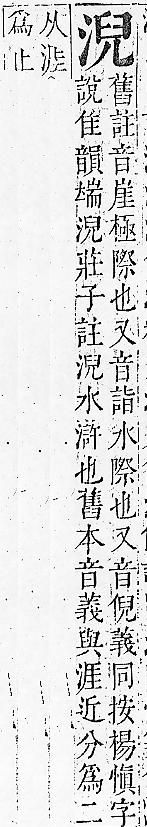 淣
舊註音崖極際也又音詣水際也又音倪義同按楊愼字
說隹韻端淣莊子註淣水滸也舊本音義與涯近分爲二
从涯
爲止